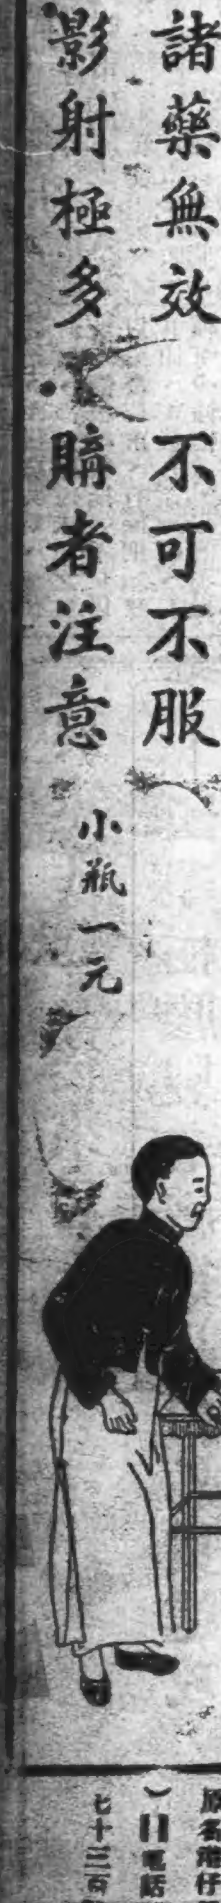 諸藥無效　不可不服
影射極多　購者注意
小瓶一元
電話
七十三